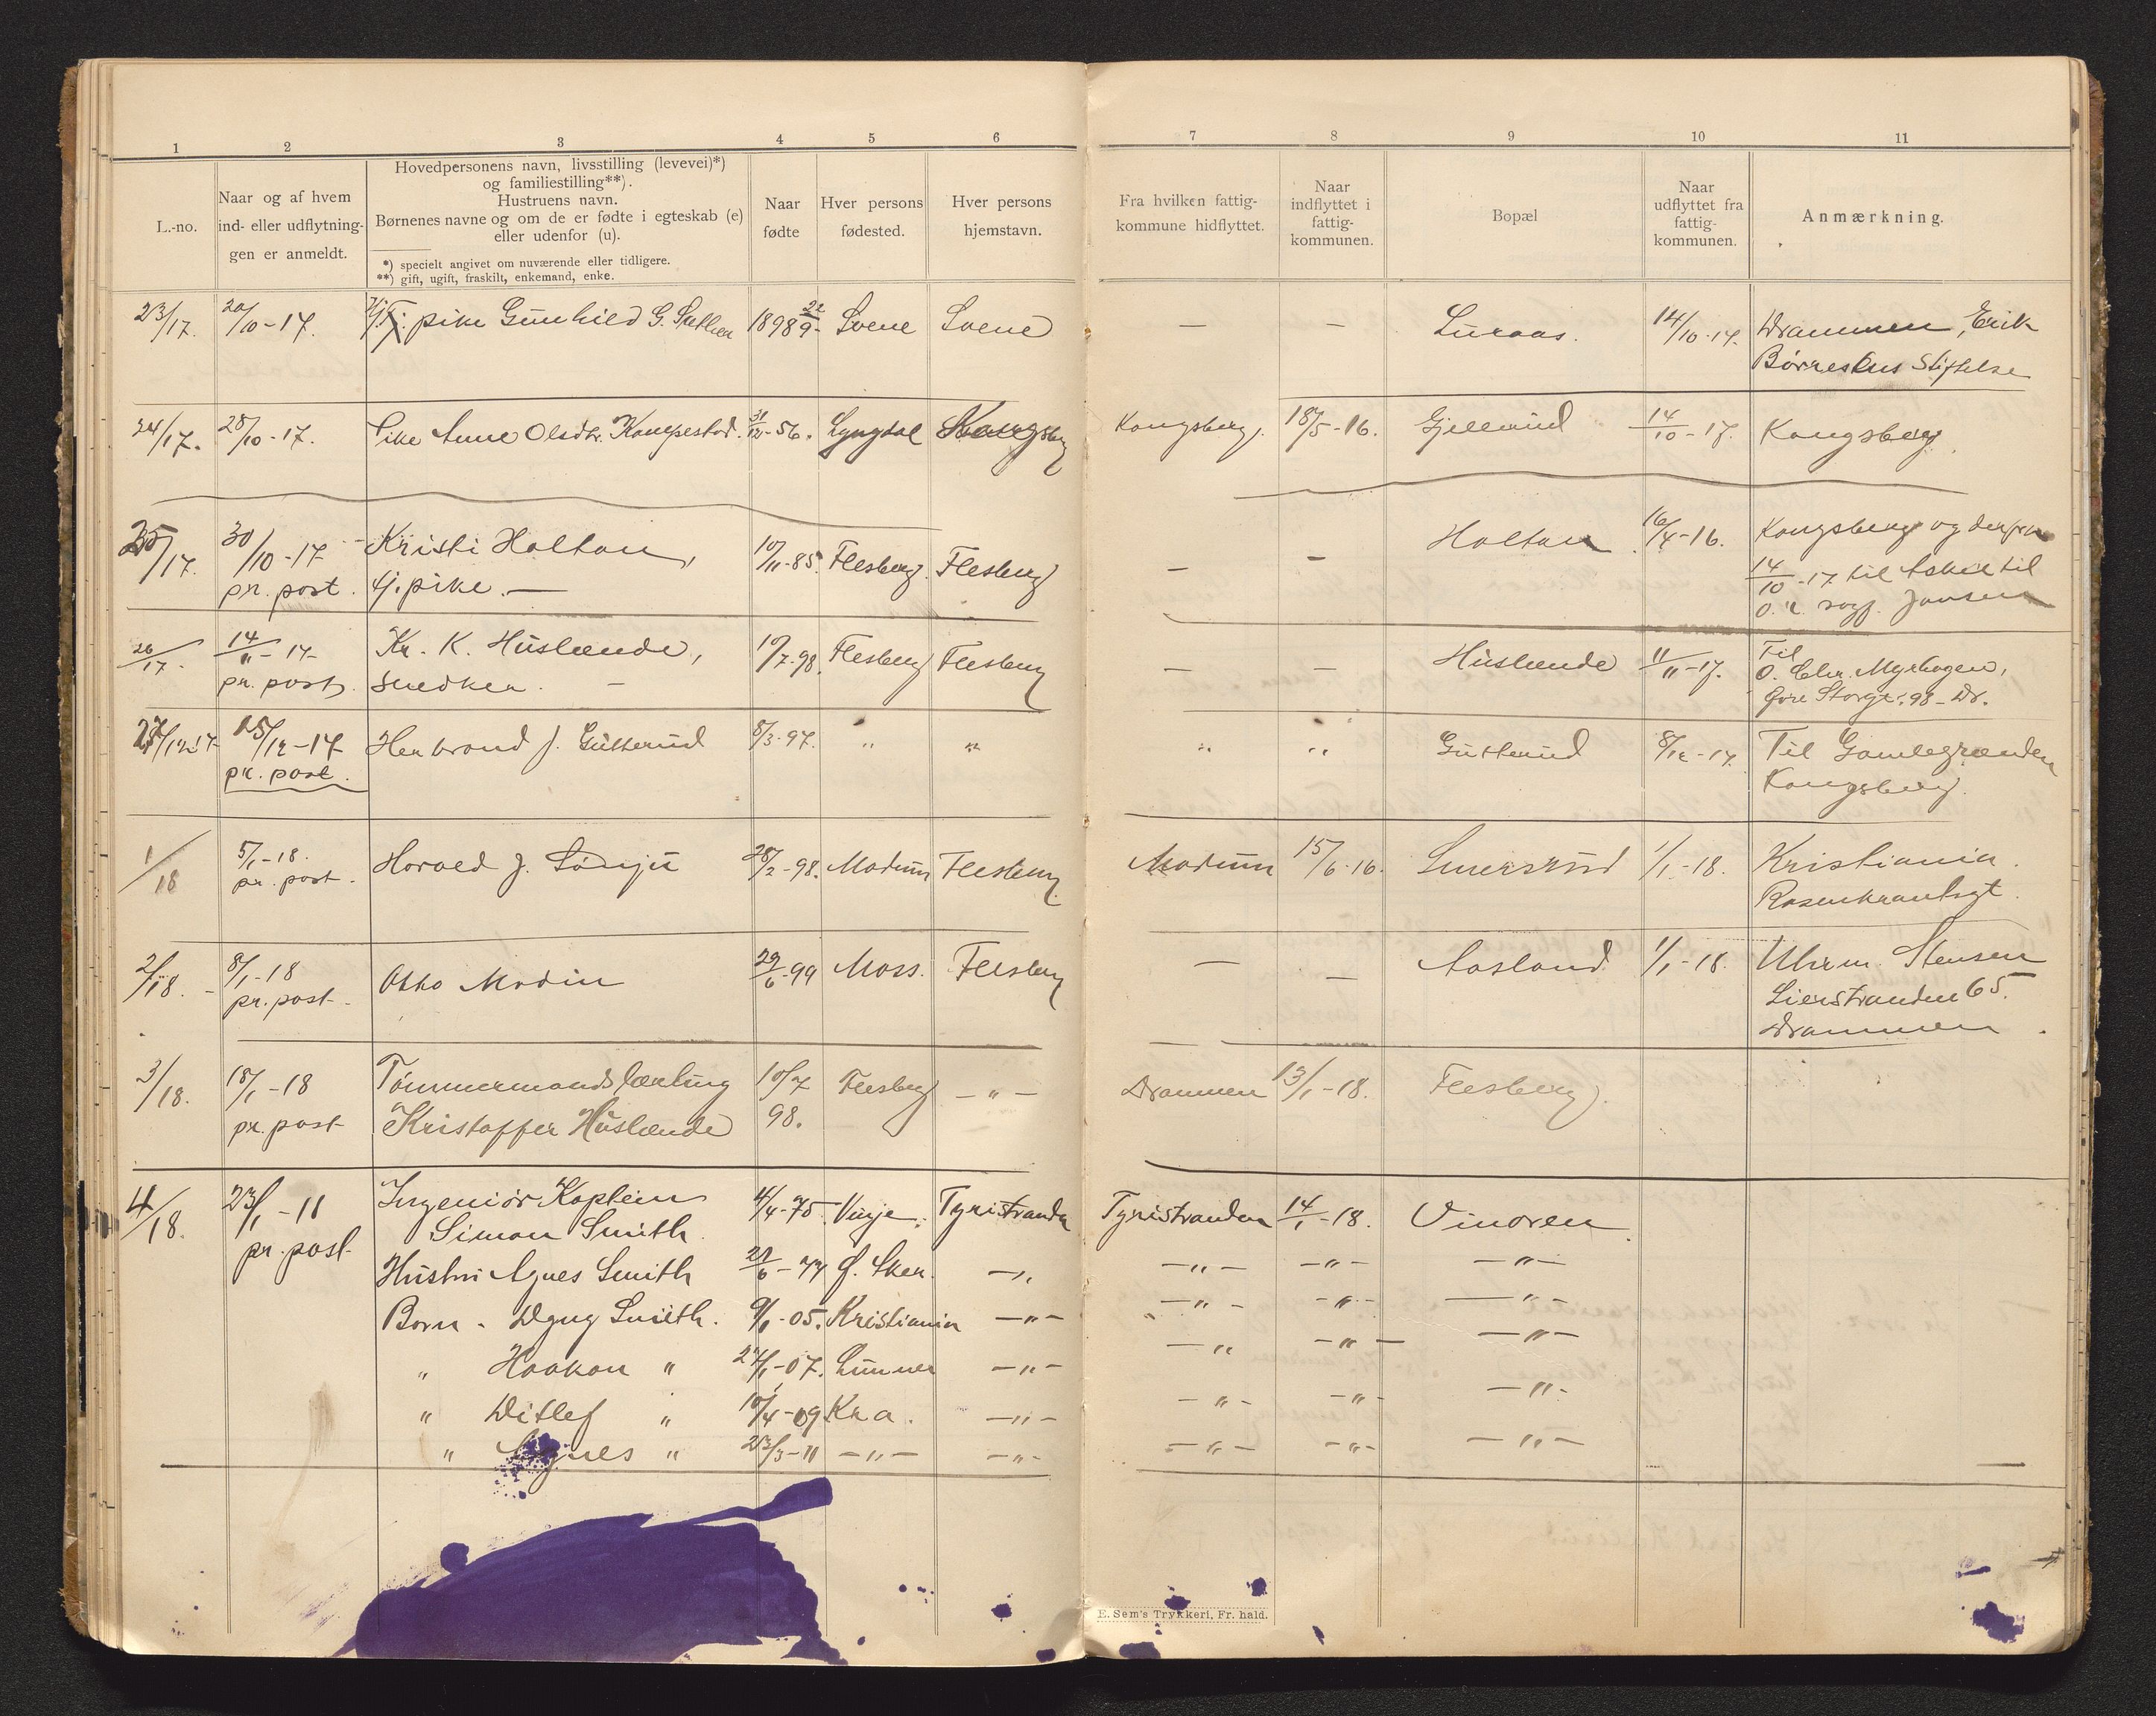 1 2 3 4 5 6 7 8 9 10 11
L.-no.
Naar og af hvem
ind- eller udflytnin-
gen er anmeldt.
Hovedpersonens navn, livsstilling (levevei)*)
og familiestilling**).
Hustruens navn.
Børnenes navne og om de er fødte i egteskab (e)
eller udenfor (u).
*) specielt angivet om nuværende eller tidligere.
**) gift, ugift, fraskilt, enkemand, enke.
Naar
fødte
Hver persons
fødested.
Hver persons
hjemstavn.
Fra hvilken fattig-
kommune hidflyttet.
Naar
indflyttet i
fattig-
kommunen.
Bopæl
Naar
udflyttet fra
fattig-
kommunen.
Anmærkning.
23/17. 20/10-17. pike Gunhild G. 1898 22/9- Svene Svene — — Luraas. 14/10-17. Drammen, Erik
Børresens Stiftelse
24/17. 28/10-17. Pike Anne Olsdtr. Kampestad. 31/12-56. Lyngdal Kongsberg Kongsberg. 18/5-16. Gjellerud 14/10-17. Kongsberg.
25/17. 30/10-17 Kristi Holtan, 10/11-85. Flesberg. Flesberg — — Holtan 16/4-16. Kongsberg og derfra
pr. post. tj. pike. — 14/10-17 til Asker til
O.r. sagf. Jansen
26/17. 14/11-17- Kr. K. Huslænde, 10/7-98. Flesberg Flesberg — — Huslænde 11/11-17. Til
O. Chr. Myrhagen,
pr. post. Snedker. — Øvre Storgt. 98 - Dr.
27/12 17 15/12-17 Herbrand J. Gutterud 8/3-97. " " " " Gutterud 8/12-17. Til Gamlegrænden
pr. post. Kongsberg.
1/18 5/1-18. Harald J. Lønju 28/2-98. Modum Flesberg. Modum 15/6-16. Smersrud 1/1-18. Kristiania.
pr. post. Rosenkrantsgt.
2/18. 8/1-18 Otto Modin 29/6-99 Moss. Flesberg — — Aasland 1/1-18. Uhrm. Stensen
pr. post- Lierstranden 65.
Drammen.
3/18. 18/1-18 Tømmermandslærling 10/7 Flesberg — " — Drammen 13/1-18. Flesberg.
pr. post Kristoffer Huslænde 98.
4/18. 23/1-18 Ingeniør Kaptein 4/4-75. Vinje. Tyristranden Tyristranden 14/1-18. Vinoren.
pr. post Simon Smith.
Hustru Agnes Smith 28/6-77 Ø. Eker. — " — " — — " — — " —
Barn - Dyng Smith. 9/1-05. Kristiania — " — — " — — " — — " —
" Haakon " 24/1-07. Lunner — " — — " — — " — — " —
" Ditlef " 10/4-09 Kr.a. — " — — " — — " — — " —
" Agnes " 23/3-11 — " — — " — — " — — " — — " —
E. Sem's Trykkeri, Fr. hald.